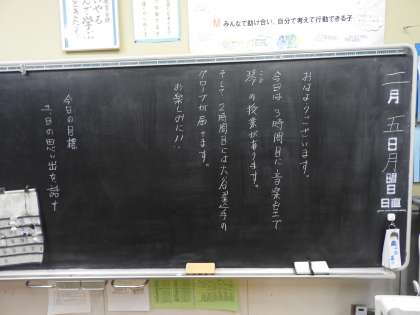 みんなで助け合い、自分で考えて行動できる子
二月五日月曜日
日直
おはようございます。
今日は3時間目に音楽室で
琴の授業があります。
こと
そして2時間目には大谷選手の
グローブが届きます。
お楽しみに!!
今日の目標
土日の思い出を話す